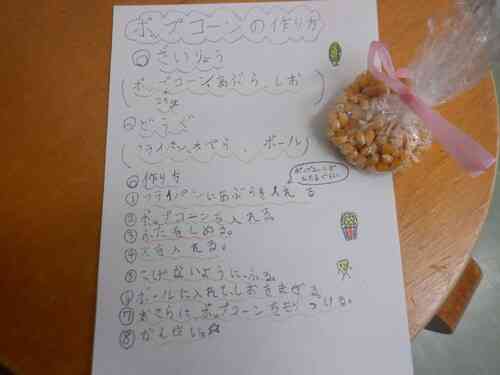 ポップコーンの作り方
◎ざいりょう
(ポップコーン、あぶら、しお)
◎どうぐ
(フライパン、おさら、ボール)
◎作り方
①フライパンにあぶらを入れる
②ポップコーンを入れる
③ふたをしめる。
④火を入れる。
⑤こげないように、ふる。
⑥ボールに入れて、しおをまぜる。
⑦おさらに、ポップコーンをもりつける。
⑧かんせい☆